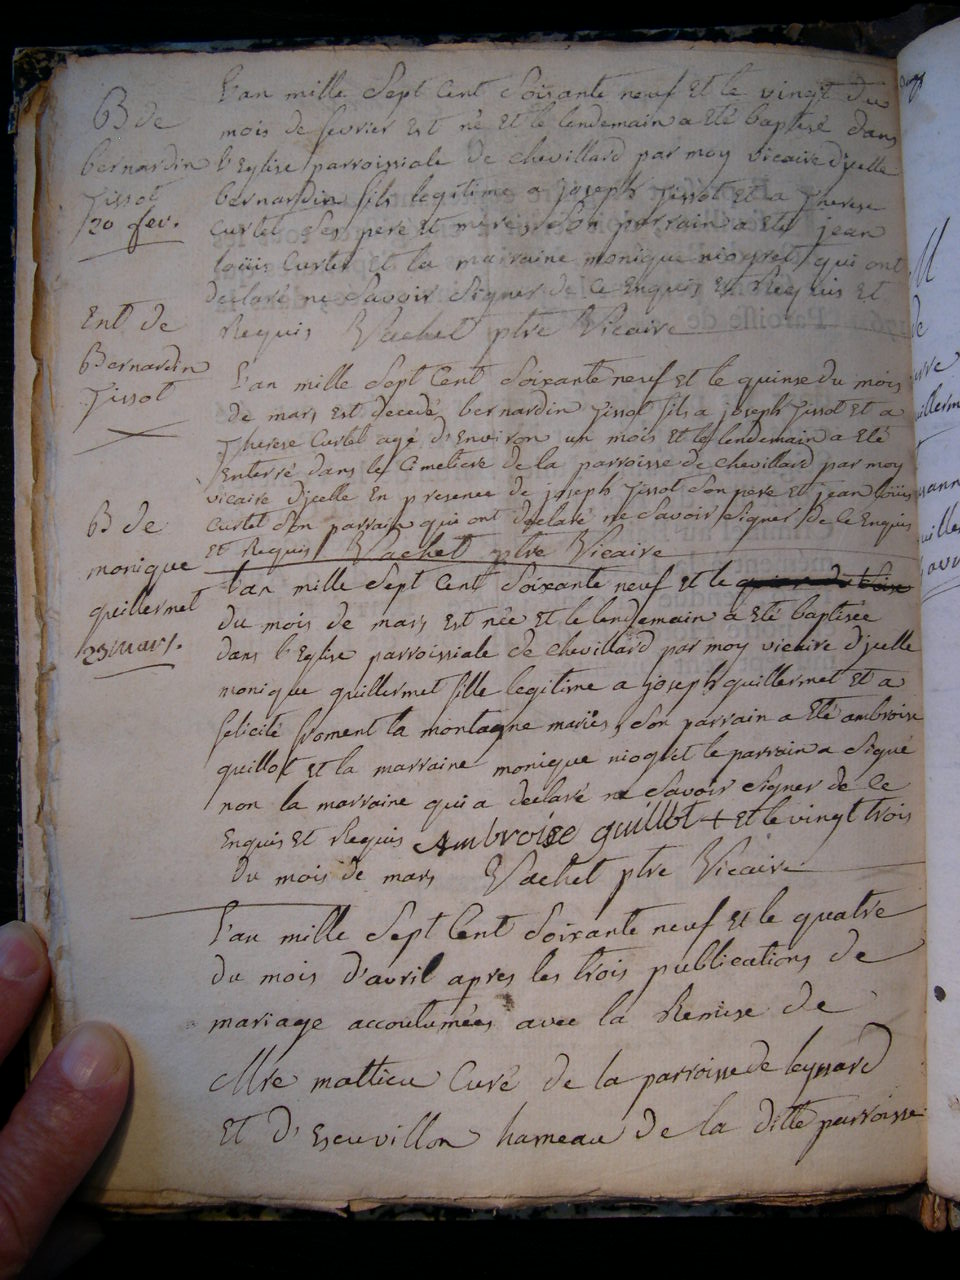 B de
bernardin
tissot
20 fev.
L'an mille Sept Cent Soixante neuf Et le vingt du
mois de fevrier Est né Et le lendemain a Eté baptisé dans
l'Eglise parroissiale de chevillard par moy vicaire d'jcelle
bernardin fils legitime a joseph tissot Et a Therese
Curtet Ses pere Et mere, Son parrain a Eté jean
loüis Curtet Et la marraine monique niogret qui ont
declaré ne Savoir Signer de Ce Enquis Et Requis Et
Requis Vachet ptre Vicaire
Ent de
Bernardin
Tissot
L'an mille Sept Cent Soixante neuf Et le quinse du mois
de mars Est decedé bernardin tissot fils a joseph tissot Et a
Therese Curtet agé d'Environ un mois Et le lendemain a Eté
Enterré dans le Cimetiere de la parroisse de chevillard par moy
vicaire d'jcelle En presence de joseph tissot Son pere Et jean loüis
Curtet Son parrain qui ont declaré ne Savoir Signer de Ce Enquis
Et Requis Vachet ptre Vicaire
B de
monique
guillermet
23 mars.
L'an mille Sept Cent Soixante neuf Et le
du mois de mars Est née Et le lendemain a Eté baptisée
dans l'Eglise parroissiale de chevillard par moy vicaire d'jcelle
monique guillermet fille legitime a joseph guillermet Et a
felicité froment la montagne mariés, Son parrain a Eté ambroise
guillot Et la marraine monique niogret le parrain a Signé
non la marraine qui a declaré ne Savoir Signer de Ce
Enquis Et Requis Ambroise guillot + Et le vingt trois
du mois de mars Vachet ptre Vicaire
L'an mille Sept Cent Soixante neuf Et le quatre
du mois d'avril apres les trois publications de
mariage accoutumées avec la Remise de
Mre mattieu Curé de la parroisse de leyssard
Et d'Escuvillon hameau de la ditte parroisse